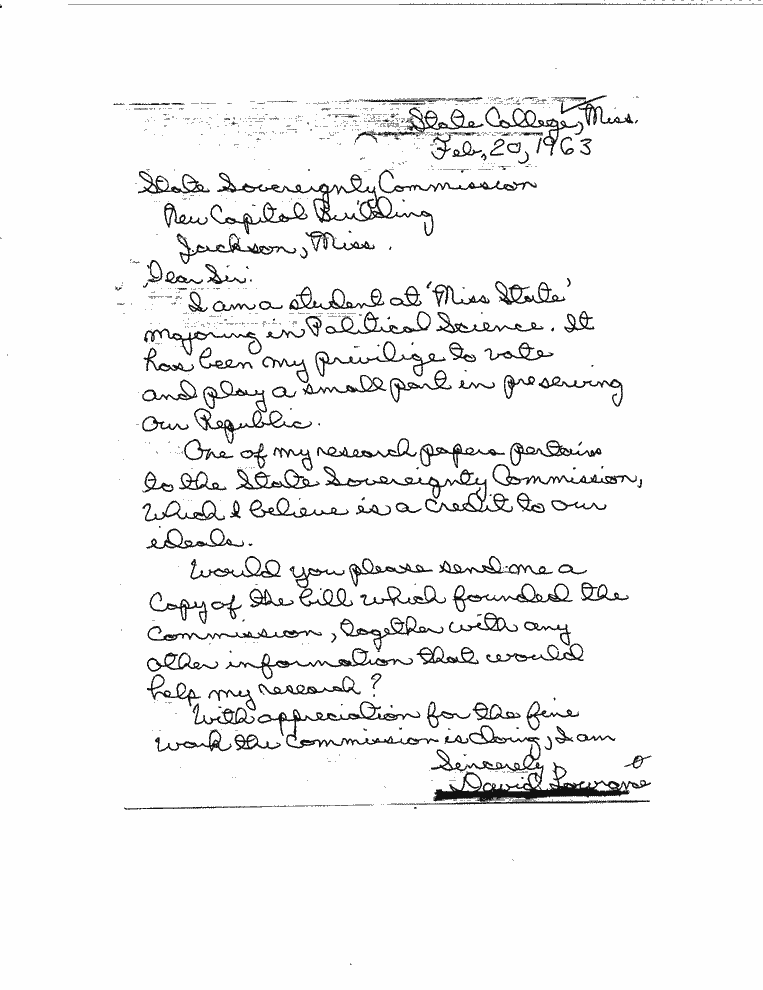 State College, Miss.
Feb, 20, 1963
State Sovereignty Commission
New Capitol Building
Jackson, Miss.
Dear Sir:
I am a student at 'Miss State'
majoring in Political Science. It
has been my privilige to vote
and play a small part in preserving
our Republic.
One of my research papers pertains
to the State Sovereignty Commission,
which I believe is a credit to our
ideals.
Would you please send me a
copy of the bill which founded the
Commission, together with any
other information that would
help my research?
With appreciation for the fine
work the Commission is doing, I am
Sincerely,
David